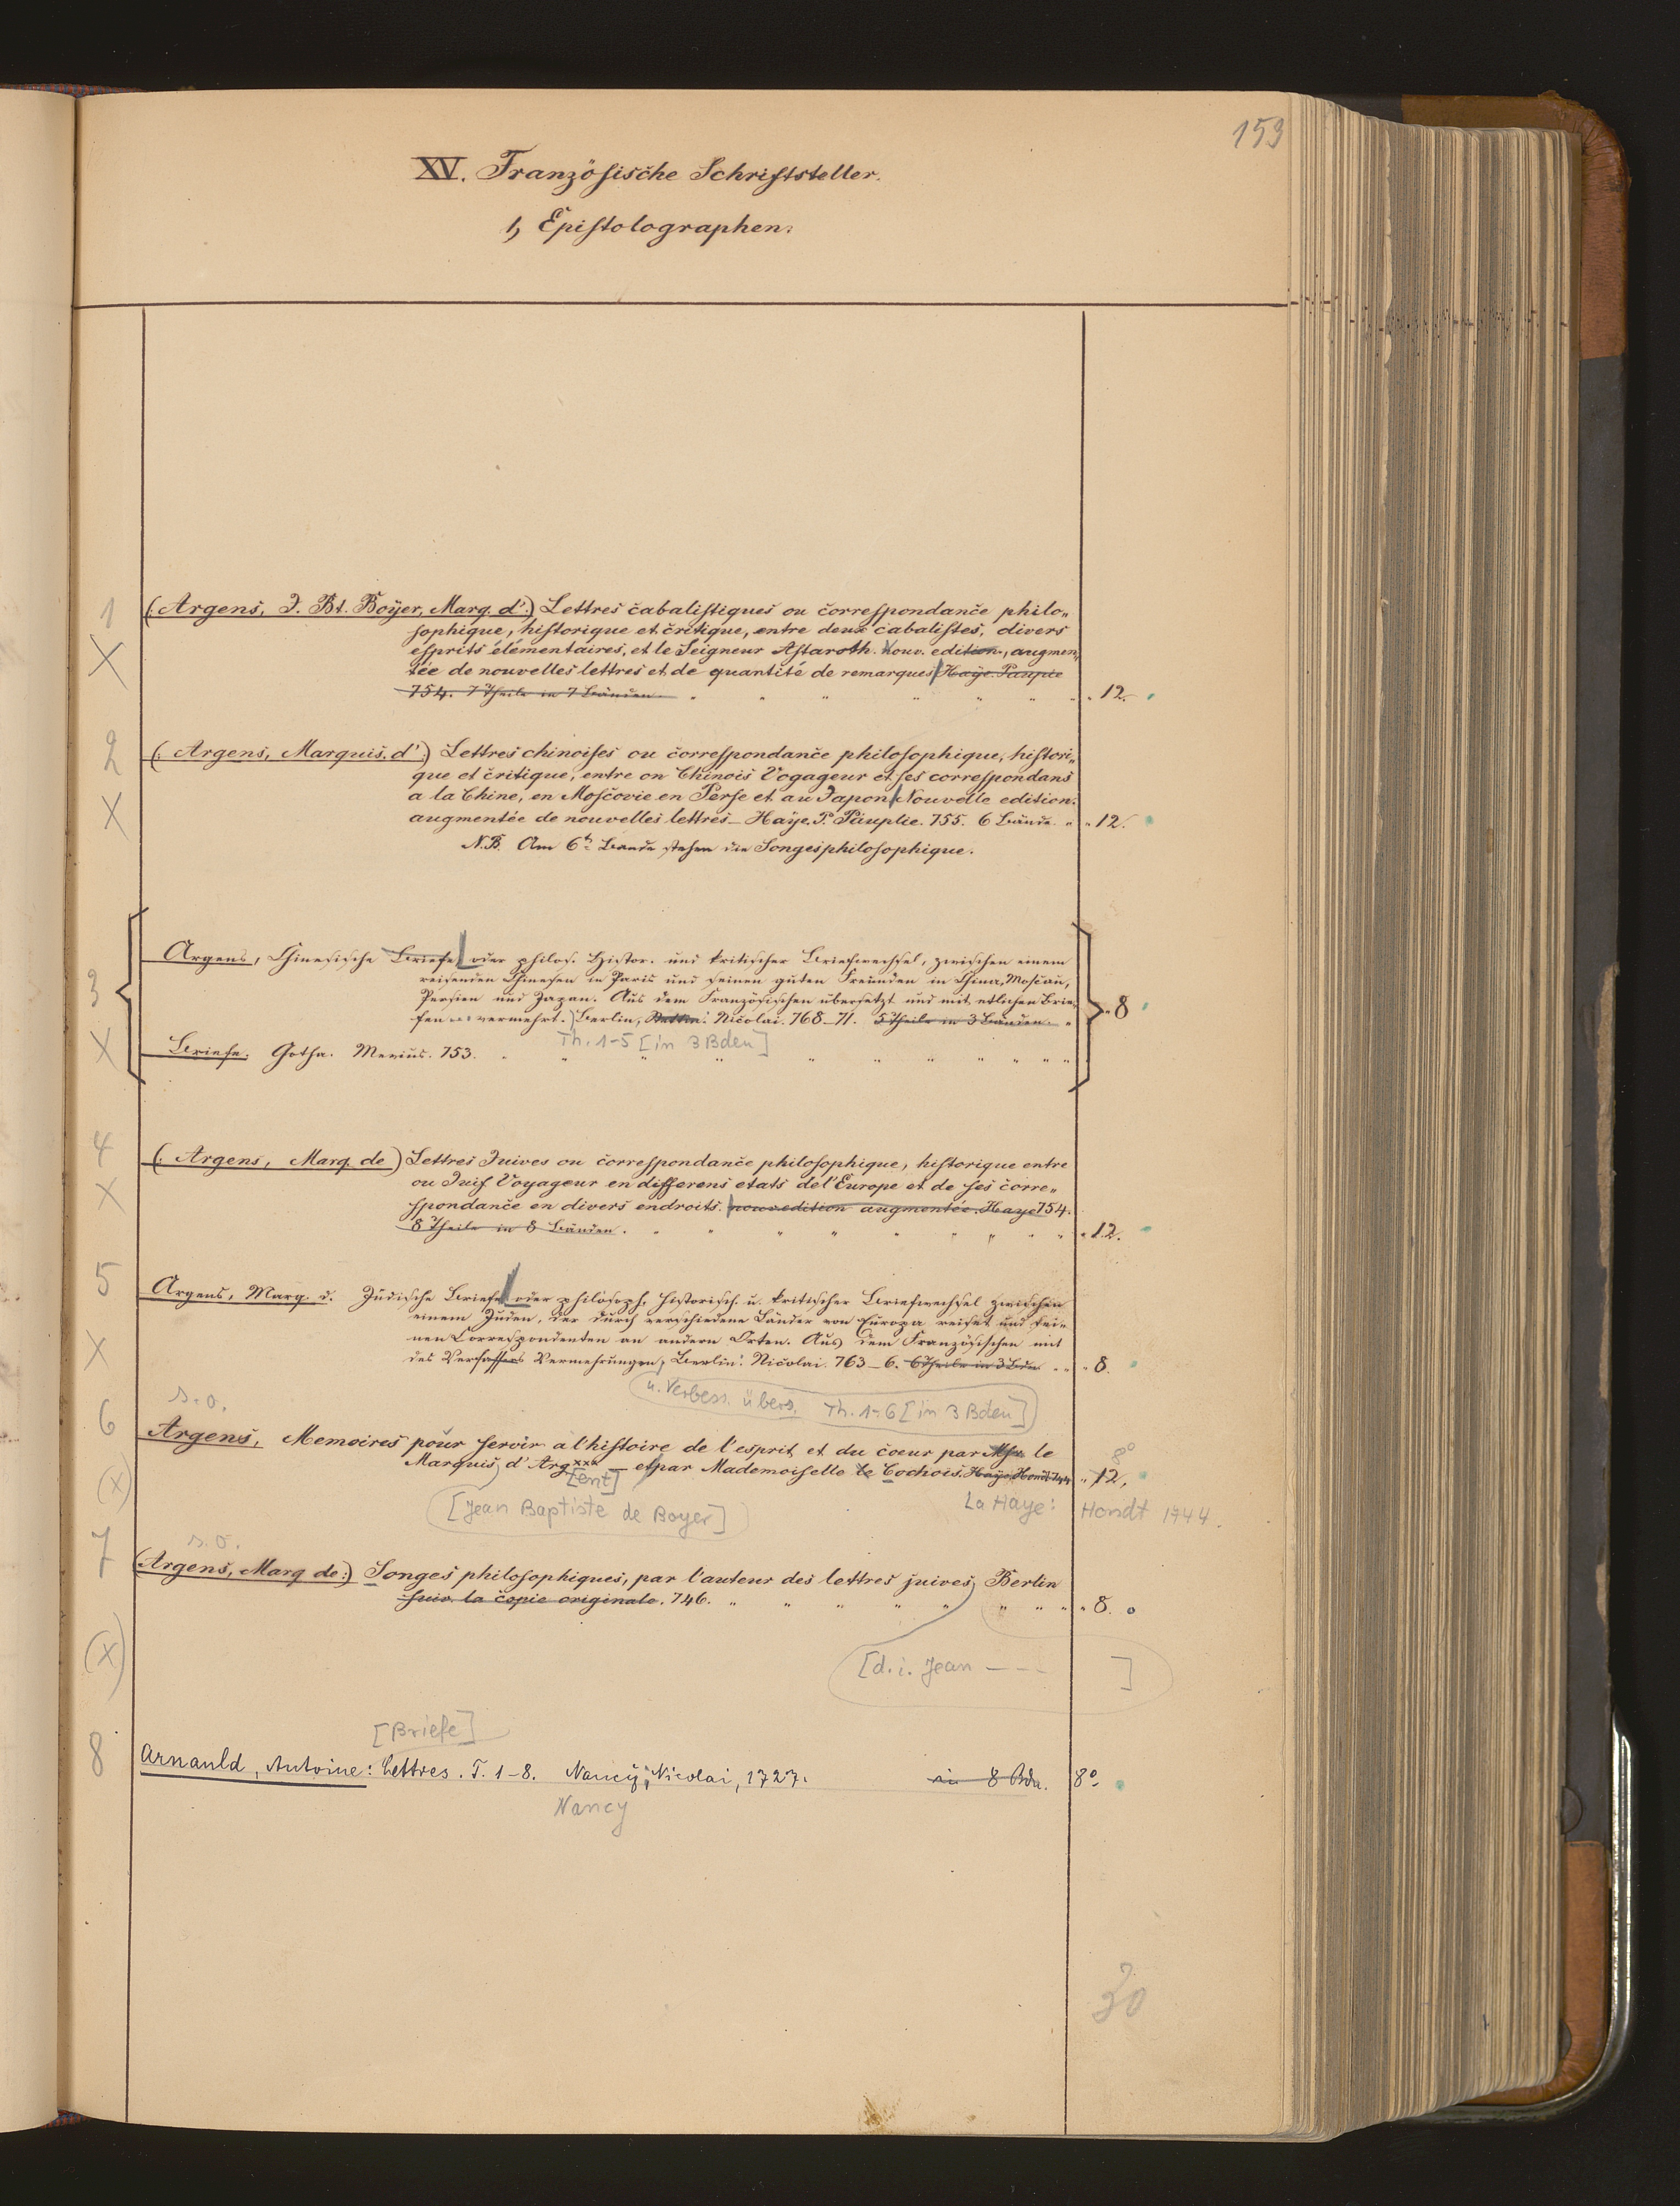 153
XV. Französische Schriftsteller.
1, Epistolographen.
1
X
(: Argens, J. Bt. Boÿer, Marq. d':) Lettres cabalistiques ou correspondance philo„
sophique, historique et critique, entre deux cabalistes, divers
esprits élémentaires, et le Seigneur Astaroth. Nouv. edition, augmen„
tée de nouvelles lettres et de quantité de remarques Haÿe. Paupie
754. 7 Theile in 7 Bänden. " " " " " " " " 12.
2
X
(: Argens, Marquis. d':) Lettres chinoises ou correspondance philosophique, histori„
que et critique, entre on Chinois Vogageur et ses correspondans
a la Chine, en Moscovie en Perse et au Japon Nouvelle edition.
augmentée de nouvelles lettres_ Haÿe. P. Páuplie. 755. 6 Bände. " " 12.
N.B. Am 6t Bande stehen die Songes philosophique.
3
X
Argens, Chinesische Briefe oder philos. Histor. und kritischer Briefwechsel, zwischen einem
reisenden Chinesen in Paris und seinen guten Freunden in China, Moscau,
Persien und Japan. Aus dem Französischen übersetzt und mit etlichen Brie„
fen vermehrt.) Berlin, Nicolai. 768_71. 5 Theile in 3 Bänden. " " 8
Th. 1-5 [in 3 Bden]
Briefe. Gotha. Mevius. 753. " " " " " " " " " " "
4
X
(: Argens, Marq. de) Lettres Juives ou correspondance philosophique, historique entre
ou Juif Voyageur en differens etats de l'Europe et de ses corre„
spondance en divers endroits. nouv. edition augmentée. Haye 754.
8 Theile in 8 Bänden. " " " " " " " " " " 12.
5
X
Argens, Marq. d. Jüdische Briefe oder philosoph. Historisch. u. kritischer Briefwechsel zwischen
einem Juden, der durch verschiedene Länder von Europa reiset und sei„
nen Correspondenten an andern Orten. Aus dem Französischen mit
des Verfassers Vermehrungen, Berlin. Nicolai. 763_6. 6 Theile in 3 Bde " " 8.
u. Verbess. übers. Th. 1-6 [in 3 Bden]
6
(x)
s. o.
Argens, Memoires pour servir a l'histoire de l'esprit et du coeur par Msr le
8°
Marquis d'Arg xxx _ et par Mademoiselle le Cochois. Haÿe. Hondt 744 " 12,
[ent]
[Jean Baptiste de Boyer] La Haye: Hondt 1744.
7
(x)
s. o.
(Argens, Marq de:) Songes philosophiques, par l'auteur des lettres juives, Berlin
suiv. la copie originale. 746. " " " " " " " " " 8. o
[d. i. Jean - - - ]
8
[Briefe]
Arnauld, Antoine: Lettres. T. 1-8. Nancÿ: Nicolai, 1727. in 8 Bdn. 8°
Nancy
30